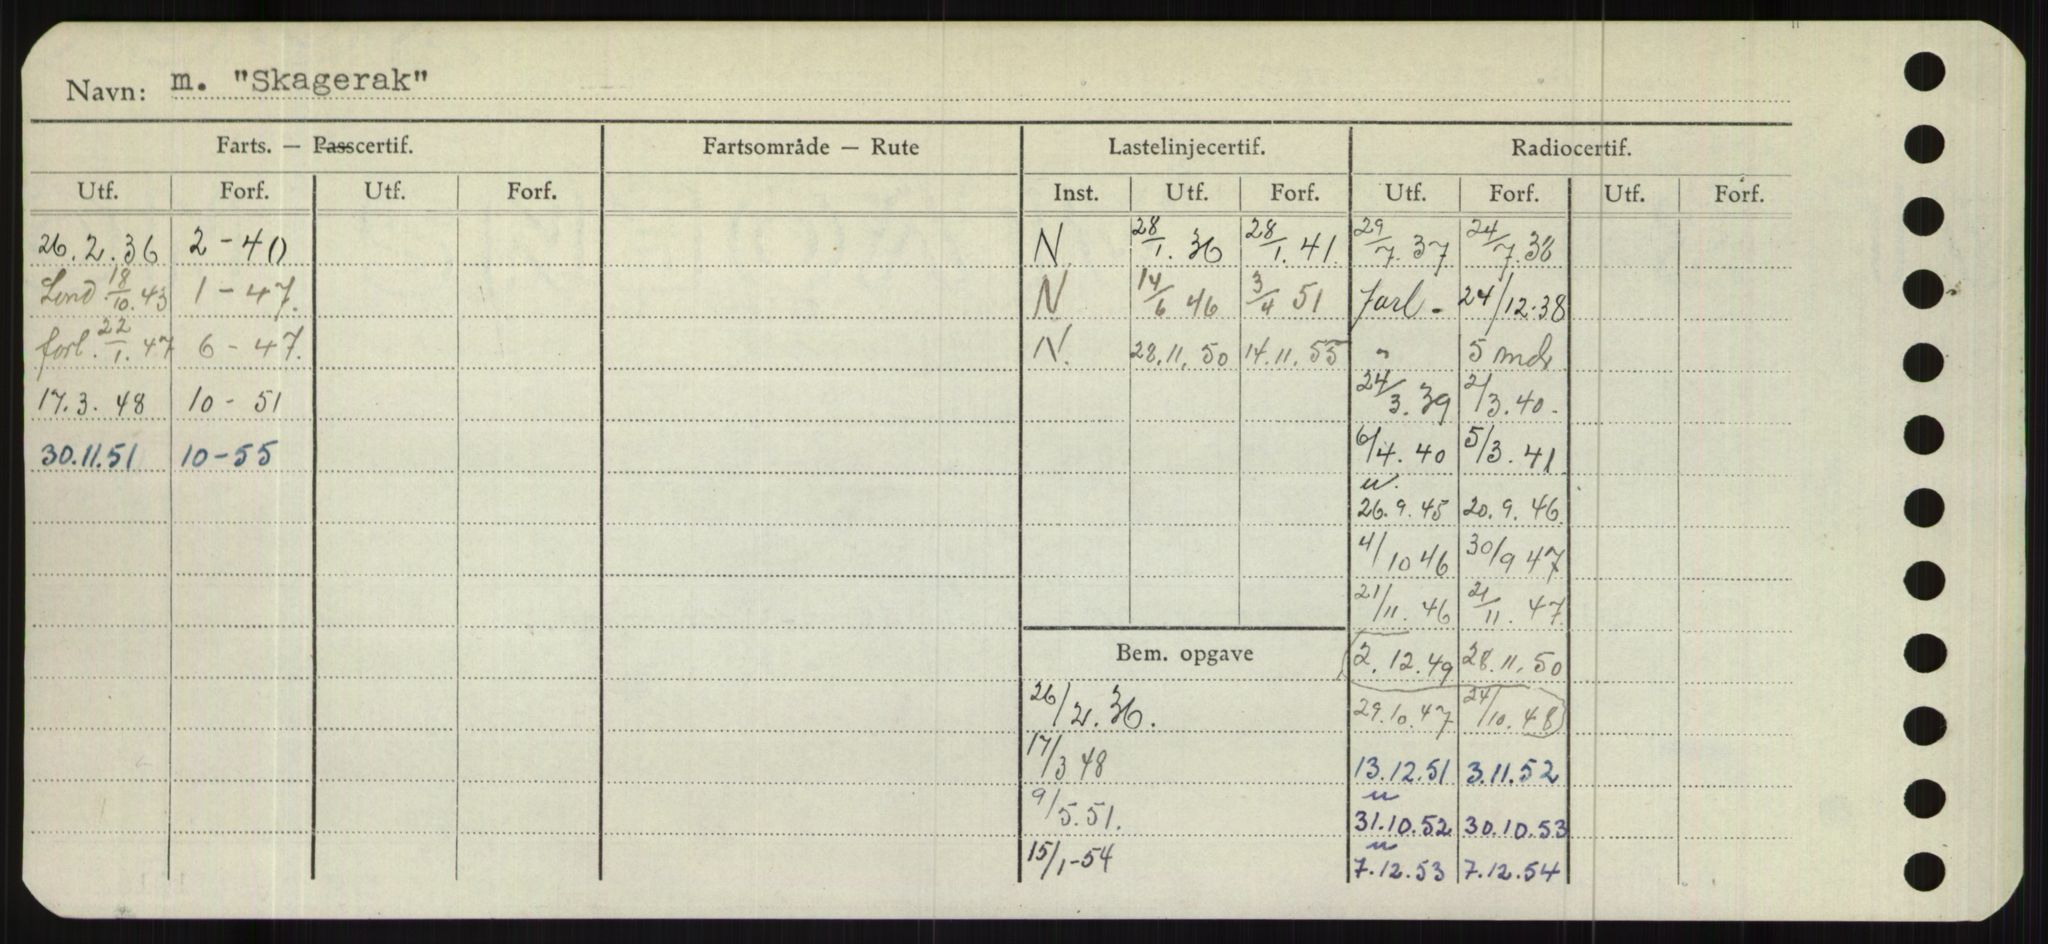 Navn: m. "Skagerak"
Farts. — Passcertif. Fartsområde — Rute Lastelinjecertif. Radiocertif.
Utf. Forf. Utf. Forf. Inst. Utf. Forf. Utf. Forf. Utf. Forf.
26.2.36 2-40 N 28/1.36 28/1.41. 29/7.37 24/7.38
Lond. 18/10.43 1-47. N 14/6 46 3/4 51 forl - 24/12.38
forl. 22/1.47 6-47. N. 28.11.50 14.11.55 " 5 mdr
17.3.48 10-51 24/3.39 2/3.40.
30.11.51 10-55 6/4.40 5/3.41
u.
26.9.45 20.9.46
4/10 46 30/9 47
21/11.46 21/11.47
Bem. opgave 2.12.49 28.11.50
26/2.36. 29.10.47 24/10.48
17/3 48 13.12.51 3.11.52
u
9/5.51. 31.10.52 30.10.53
u
15/1-54 7.12.53 7.12.54